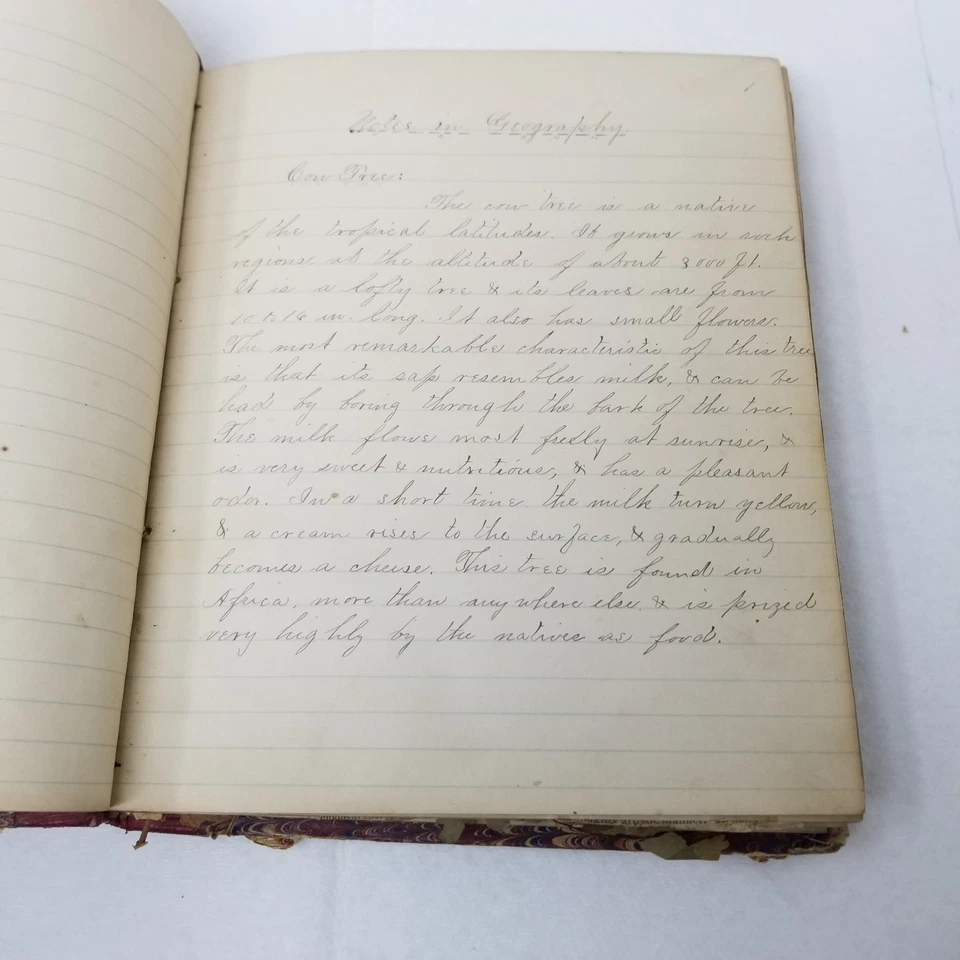 Notes in Geography.
Cow Tree:
The cow tree is a native
of the tropical latitudes. It grows in rock
regions at the altitude of about 3000 ft.
It is a lofty tree & its leaves are from
10 to 16 in. long. It also has small flowers.
The most remarkable characteristic of this tree
is that its sap resembles milk, & can be
had by boring through the bark of the tree.
The milk flows most freely at sunrise, &
is very sweet & nutritious, & has a pleasant
odor. In a short time the milk turn yellow,
& a cream rises to the surface, & gradually
becomes a cheese. This tree is found in
Africa, more than any where else, & is prized
very highly by the natives as food.